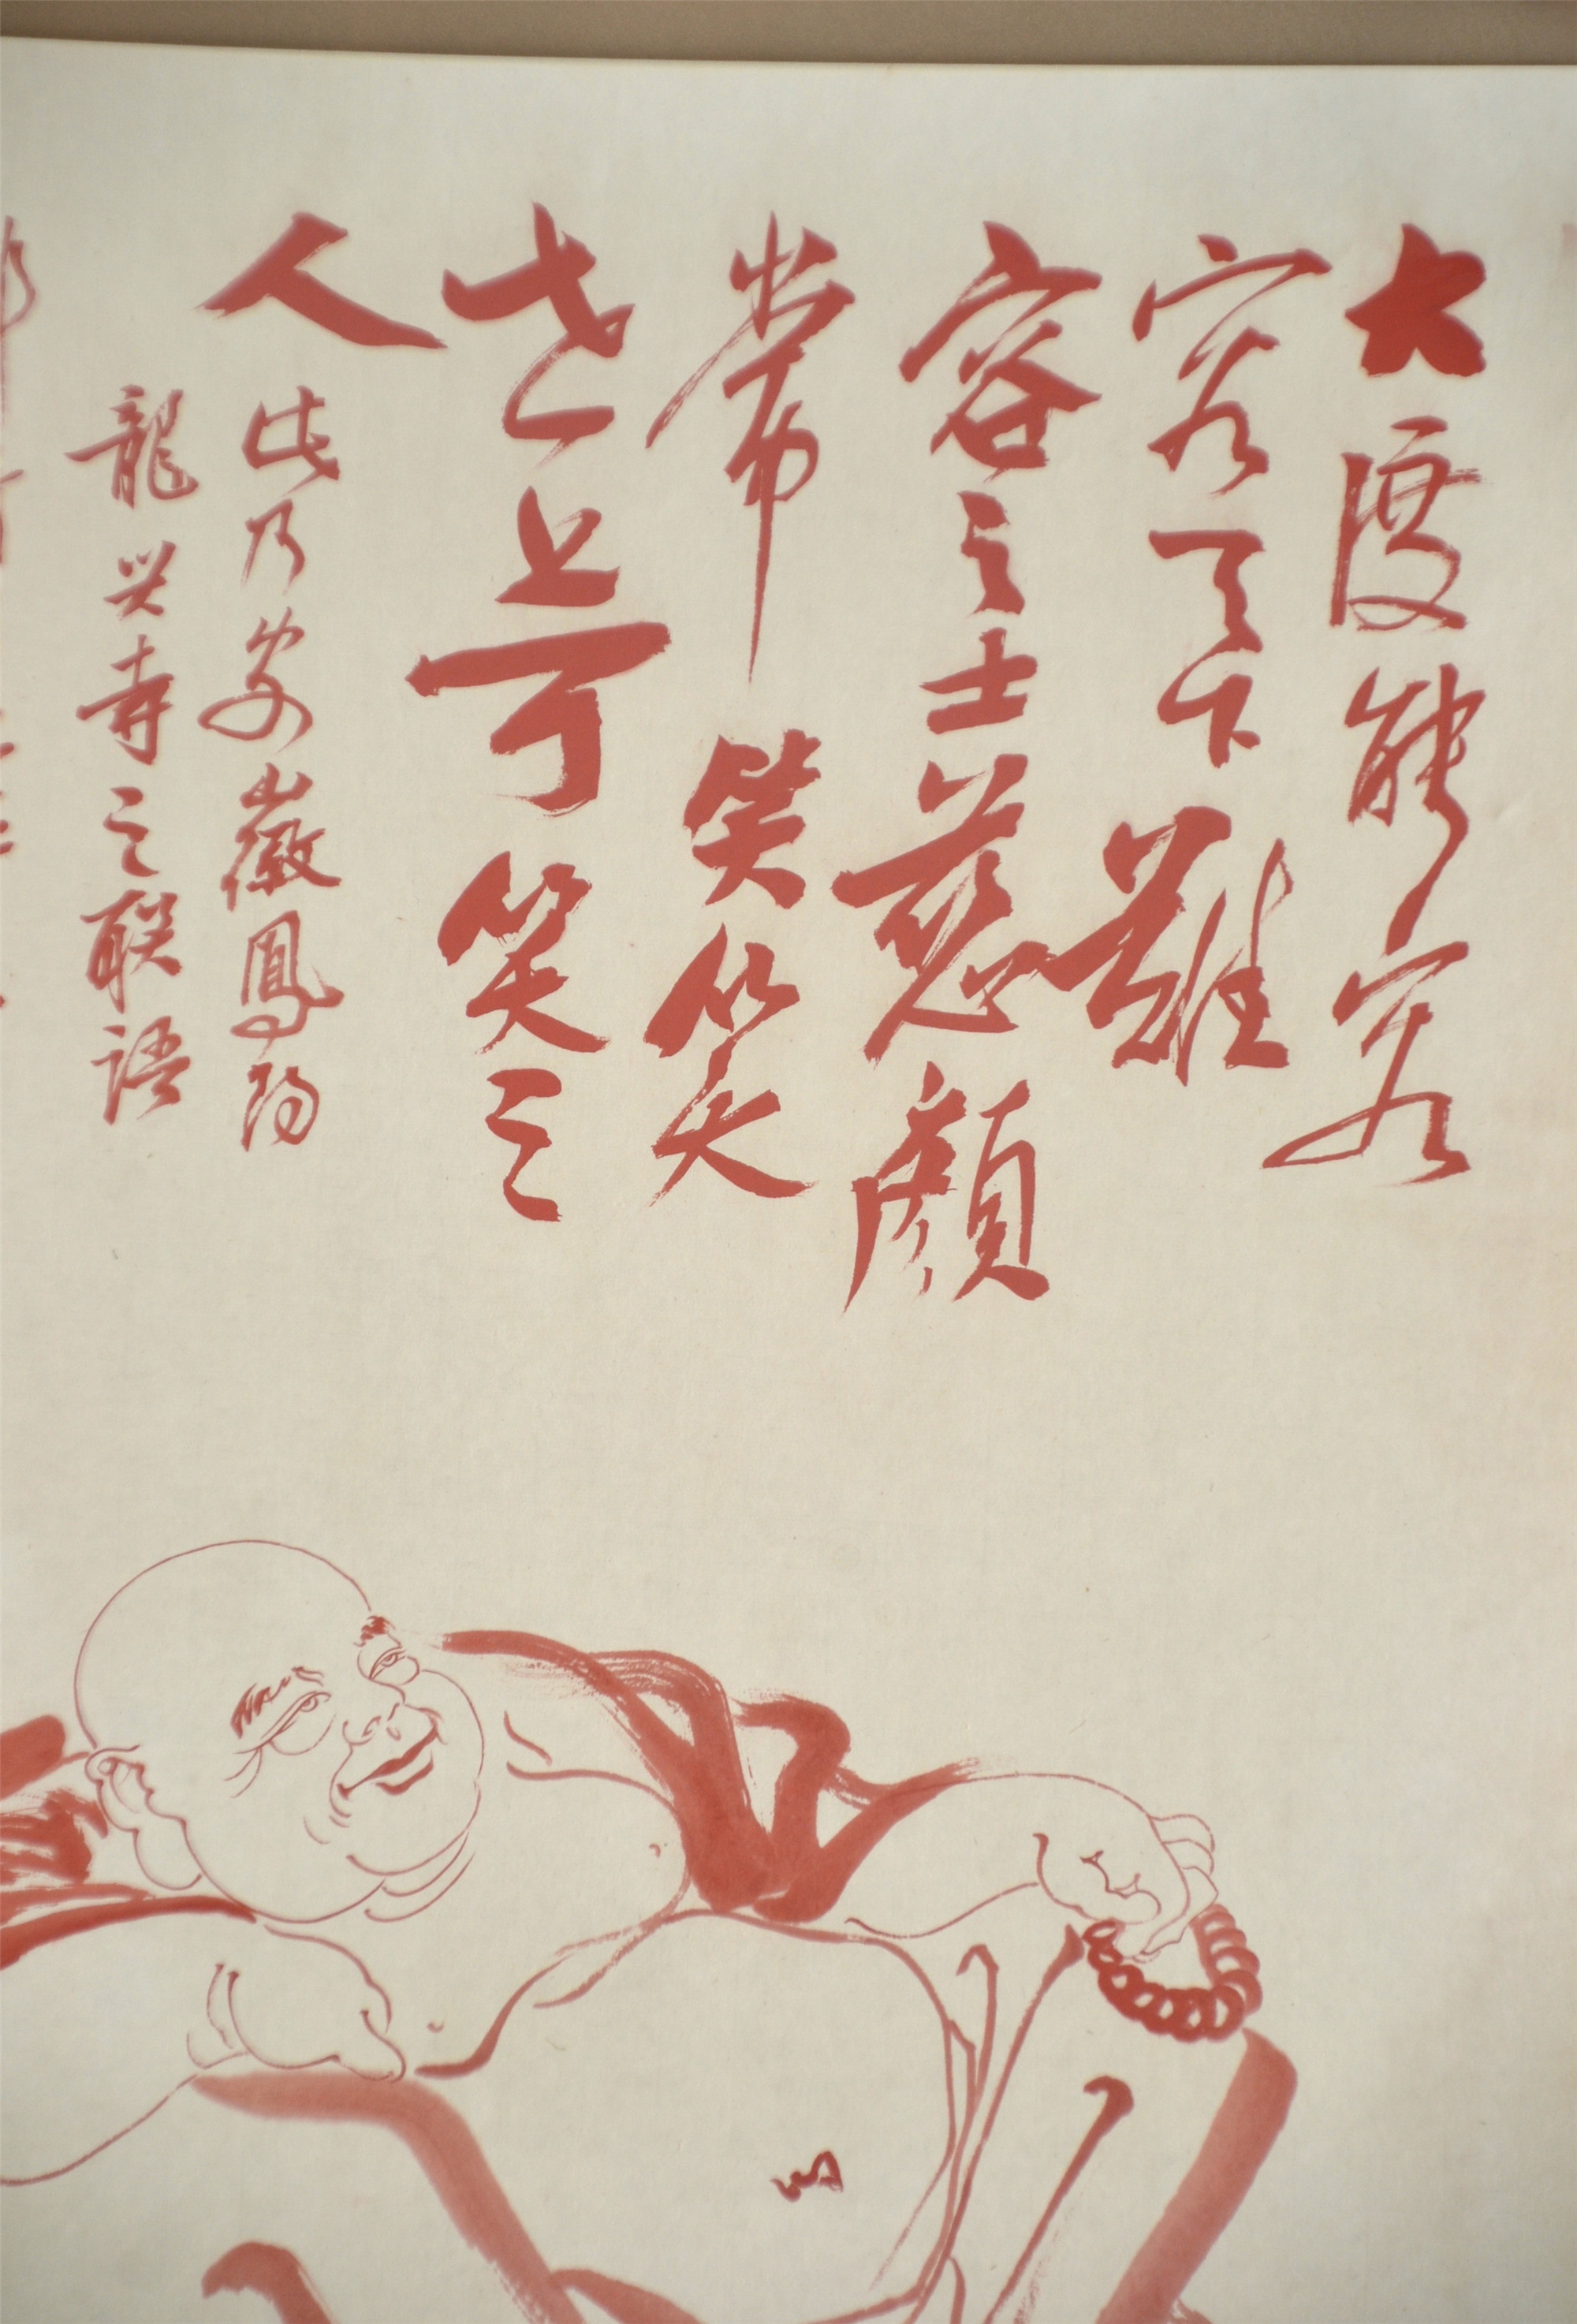 大度能容
容天下難
容之士慈顔
常笑笑
世上可笑之
人
此乃安徽鳳陽
龍兴寺之联語